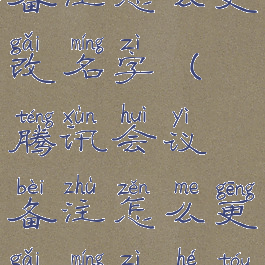 备注怎么更
gǎi míng zì
改名字（
téng xùn huì yì
腾讯会议
bèi zhù zěn me gēng
备注怎么更
gǎi míng zì hé tóu